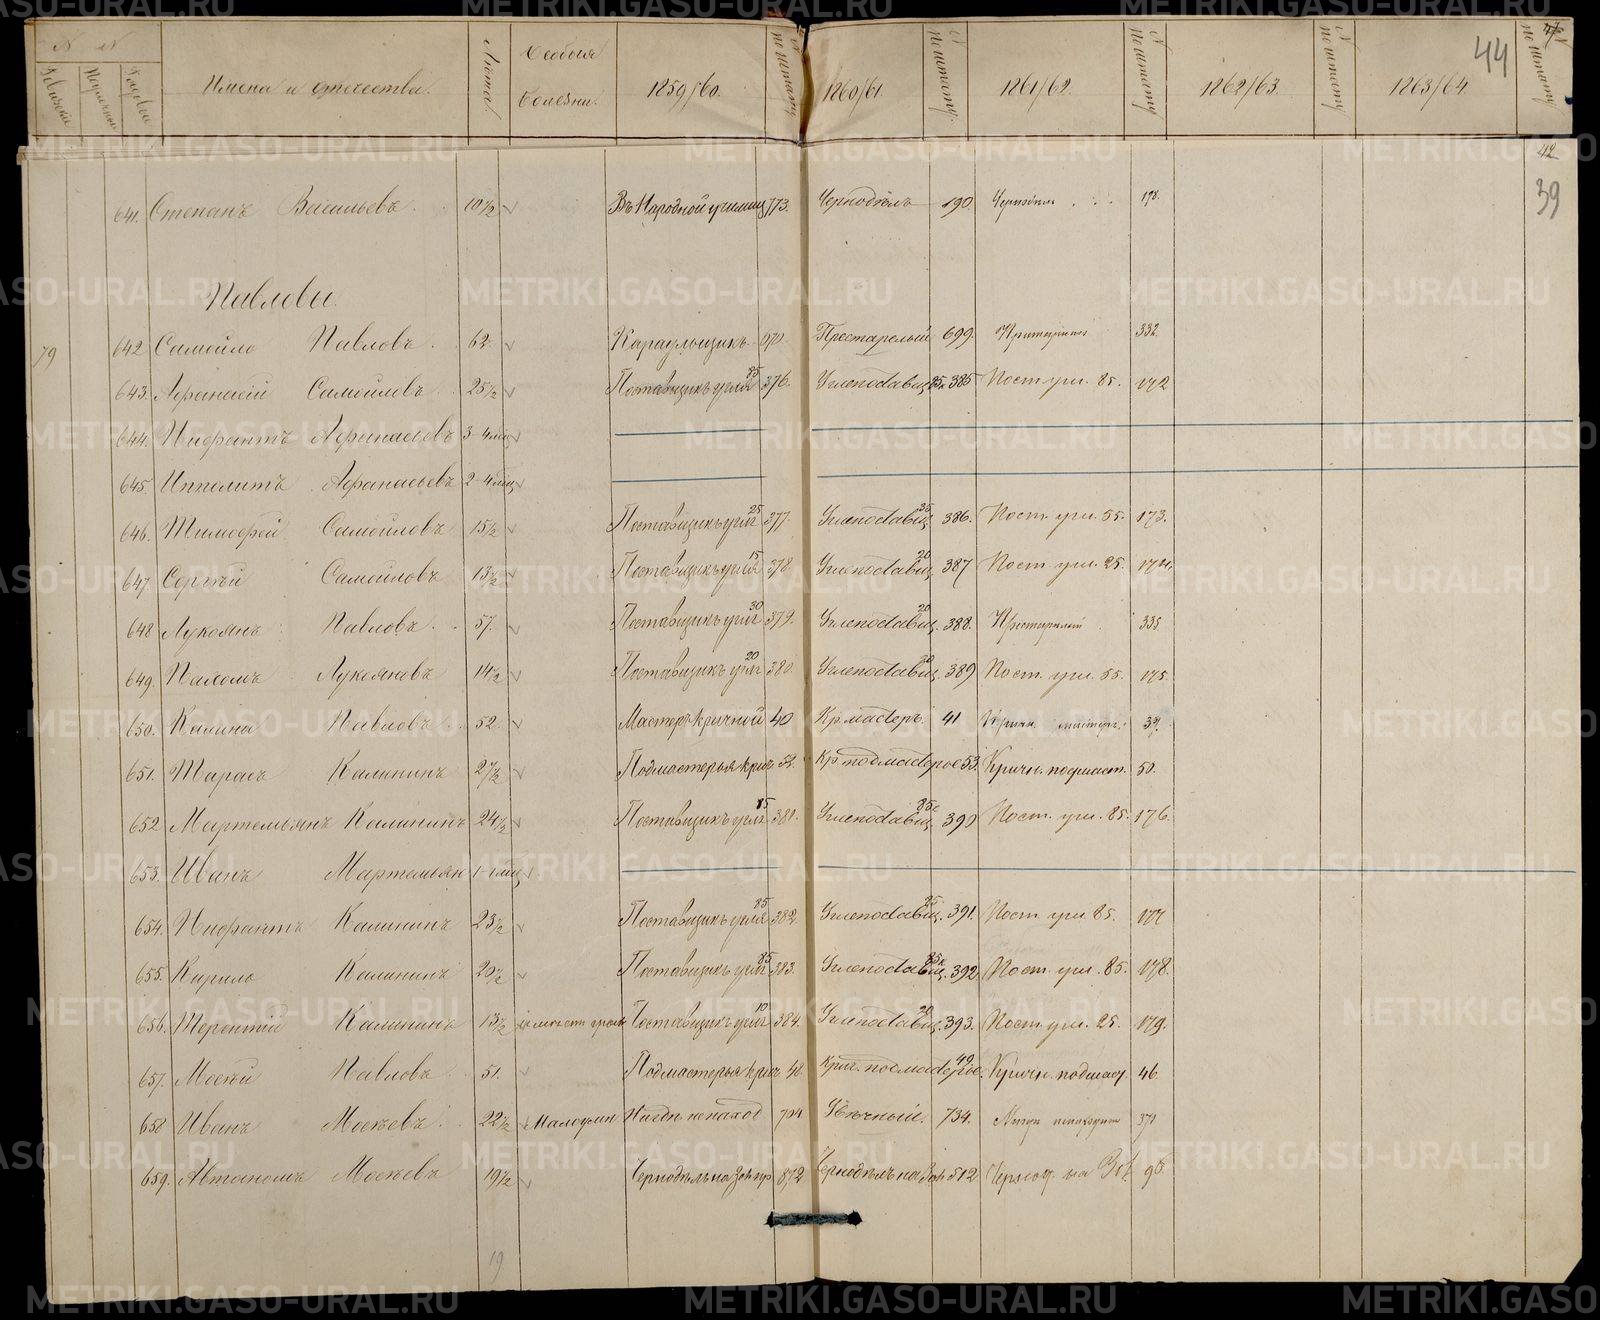 N N
Имена и отчества.
Лета.
Особыя болезни.
1859/60.
N по штату
1860/61
N по штату.
1861/62.
N по штату
1862/63.
N по штату
1863/64.
N по штату
44
42
39
641. Степанъ Васильевъ. 10½ Въ Народной училищ 773. Чернодѣлъ 190. 198.
Павловы.
79 642 Самойло Павловъ. 62 Караульщикъ 670. Престарелый 699. 332.
643. Афанасій Самойловъ 25½ Поставщикъ угля 85 376. Углепоставщ. 85 385 Пост. угл. 85. 172
644. Нифантъ Афанасьевъ 3-4 мц
645. Ипполитъ Афанасьевъ 2-4 мц
646. Тимофей Самойловъ 15½ Поставщикъ угля 25 377. Углепоставщ 25 386. Пост. угл. 55. 173.
647. Сергѣй Самойловъ 13½ Поставщикъ угля 15 378 Углепоставщ 20 387 Пост. угл. 25. 174.
648 Лукоянъ Павловъ. 57. Поставщикъ угля 30 379. Углепоставщ. 20 388. Престарелый 335
649. Пахомъ Лукояновъ 14½ Поставщикъ угля 20 380. Углепоставщ. 20 389 Пост. угл. 55. 175.
650. Калина Павловъ. 52. Мастеръ кричной 40 Кр мастеръ. 41 Кричн. мастеръ. 39.
651. Тарасъ Калининъ 27½ Подмастерья крич 52. Кр подмастерое 53. Кричн. подмаст. 50.
652 Мартемьянъ Калининъ 24½ Поставщикъ угля 85 381. Углепоставщ 85 390 Пост. угл. 85. 176.
653. Иванъ Мартемьян 1-1 мц
654. Нифантъ Калининъ 23½ Поставщикъ угля 85 382. Углепоставщ. 85 391. Пост. угл. 85. 177
655. Кирило Калининъ 20½ Поставщикъ угля 85 383. Углепоставщ. 85 392 Пост. угл. 85. 178.
656. Терентій Калининъ 13½ Поставщикъ угля 10 384. Углепоставщ. 20 393. Пост. угл. 25. 179.
657. Мосѣй Павловъ. 51. Подмастерья крич 48. Крич. подмастерое. 49 Кричн. подмаст. 46.
658 Иванъ Мосѣевъ. 22½ Малоумн. Нигдѣ не наход 704 Увѣчный. 734. 371
659. Автономъ Мосѣевъ 19½ 872 Чернодѣлъ на 512 95.
19
METRIKI.GASO-URAL.RU